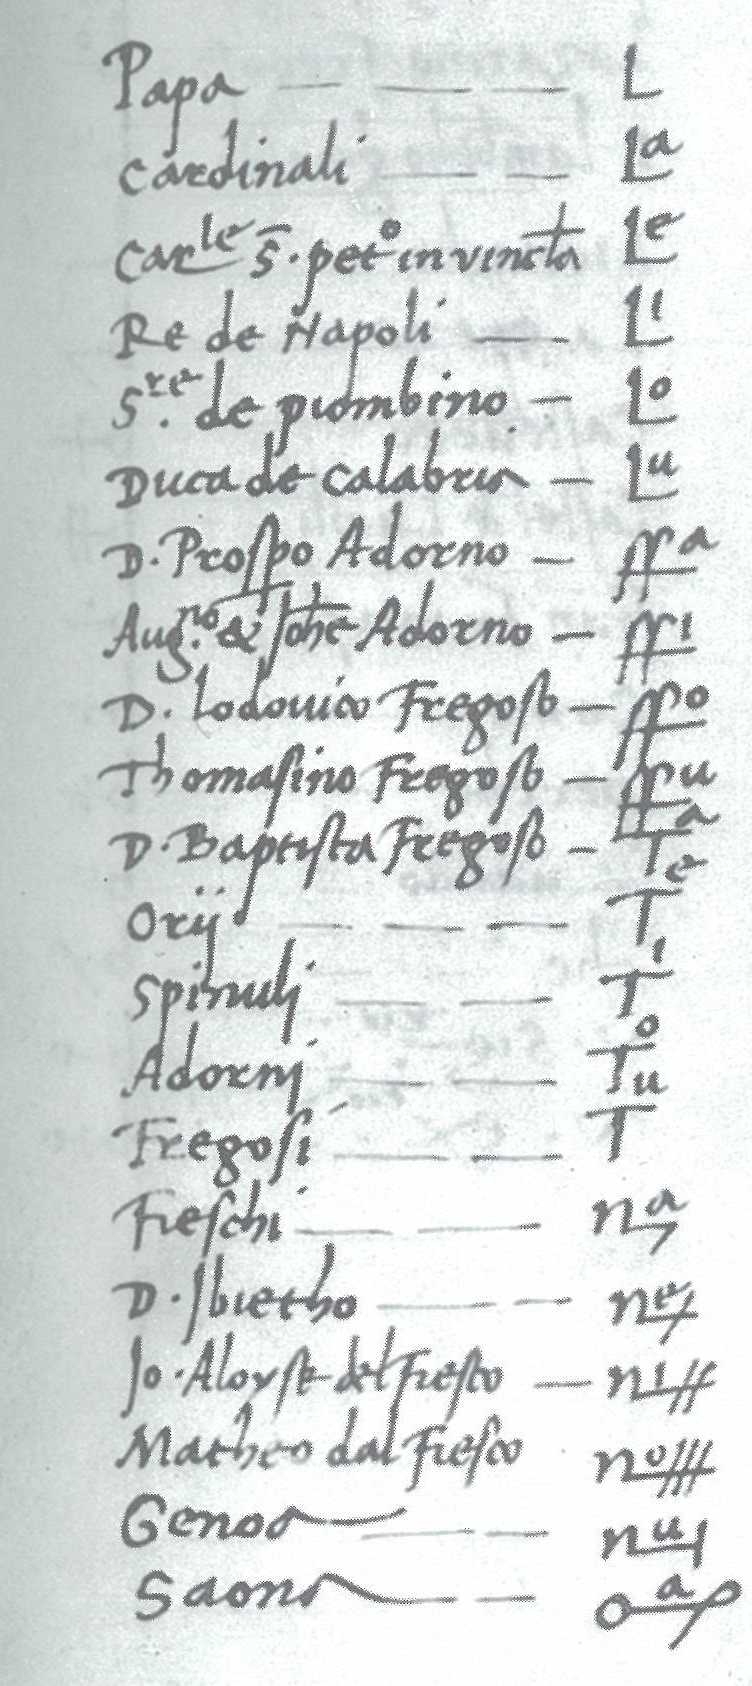 Papa — — — L
Cardinali — — Lᵃ
Carˡᵉ S̄. petº in vincta Lᵉ
Re de Napoli — — Lⁱ
S.ʳᵉ de piombino — Lº
Duca de Calabria — Lᵘ
D. Prospo Adorno — ſſᵃ
Aug.ⁿº & Johe Adorno — ſſⁱ
D. Lodovico Fregoso — ſſº
Thomasino Fregoso — ſſᵘ
D. Baptista Fregoso — Tᵃ
Orij — — — Tᵉ
Spinulj — — Tⁱ
Adornj — — Tº
Fregosi — — Tᵘ
Freschi — — nᵃ
D. Ibietho — — nᵉ
Jo. Aloyse del Fiesco — nⁱ
Matheo dal Fiesco nº
Genoa — — nᵘ
Saona — — oᵃ